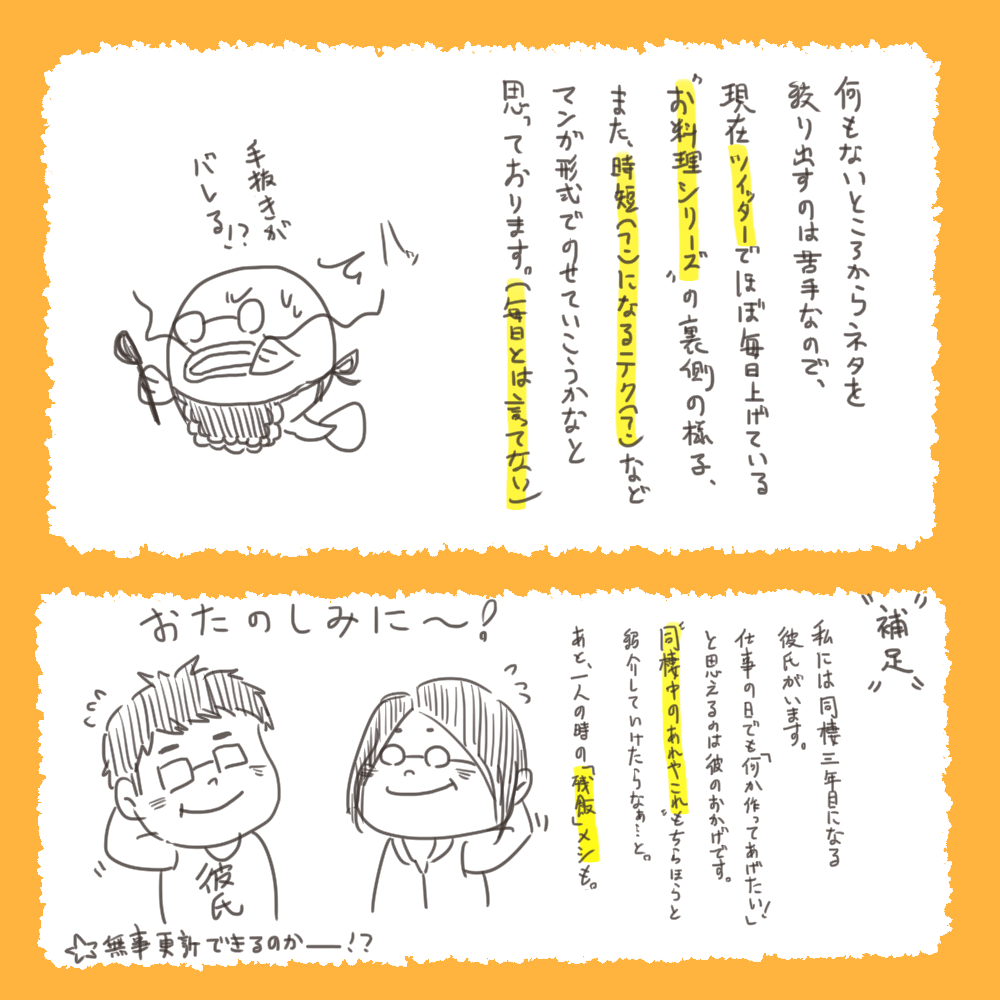 何もないところからネタを
絞り出すのは苦手なので、
現在ツイッターでほぼ毎日上げている
"お料理シリーズ"の裏側の様子、
また、時短(?)になるテク(?)など
マンガ形式でのせていこうかなと
思っております。(毎日とは言ってない)
手抜きが
バレる!?
"補足"
私には同棲三年目になる
彼氏がいます。
仕事の日でも「何か作ってあげたい!」
と思えるのは彼のおかげです。
"同棲中のあれやこれ"もちらほらと
紹介していけたらなぁ…と。
あと、一人の時の「残飯」メシも。
おたのしみに〜!
彼氏
☆無事更新できるのかー!?